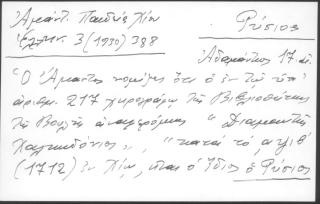 Ἀμάντ. Παιδεία Χίου
Ἑλλην. 3 (1930) 388
Ρύσιος
Ἀδαμάντιος 17 αἰ.
"Ὁ Ἄμαντος νομίζει ὅτι ὁ ἐν τῷ ὑπ'
ἀριθμ. 217 χειρογράφῳ τῆς Βιβλιοθήκης
τῆς Βουλῆς ἀναγραφόμενος "Διαμαντῆς
Χαλκηδόνιος", κατὰ τὸ
(1712) ἐν Χίῳ, εἶναι ὁ ἴδιος ὁ Ρύσιος